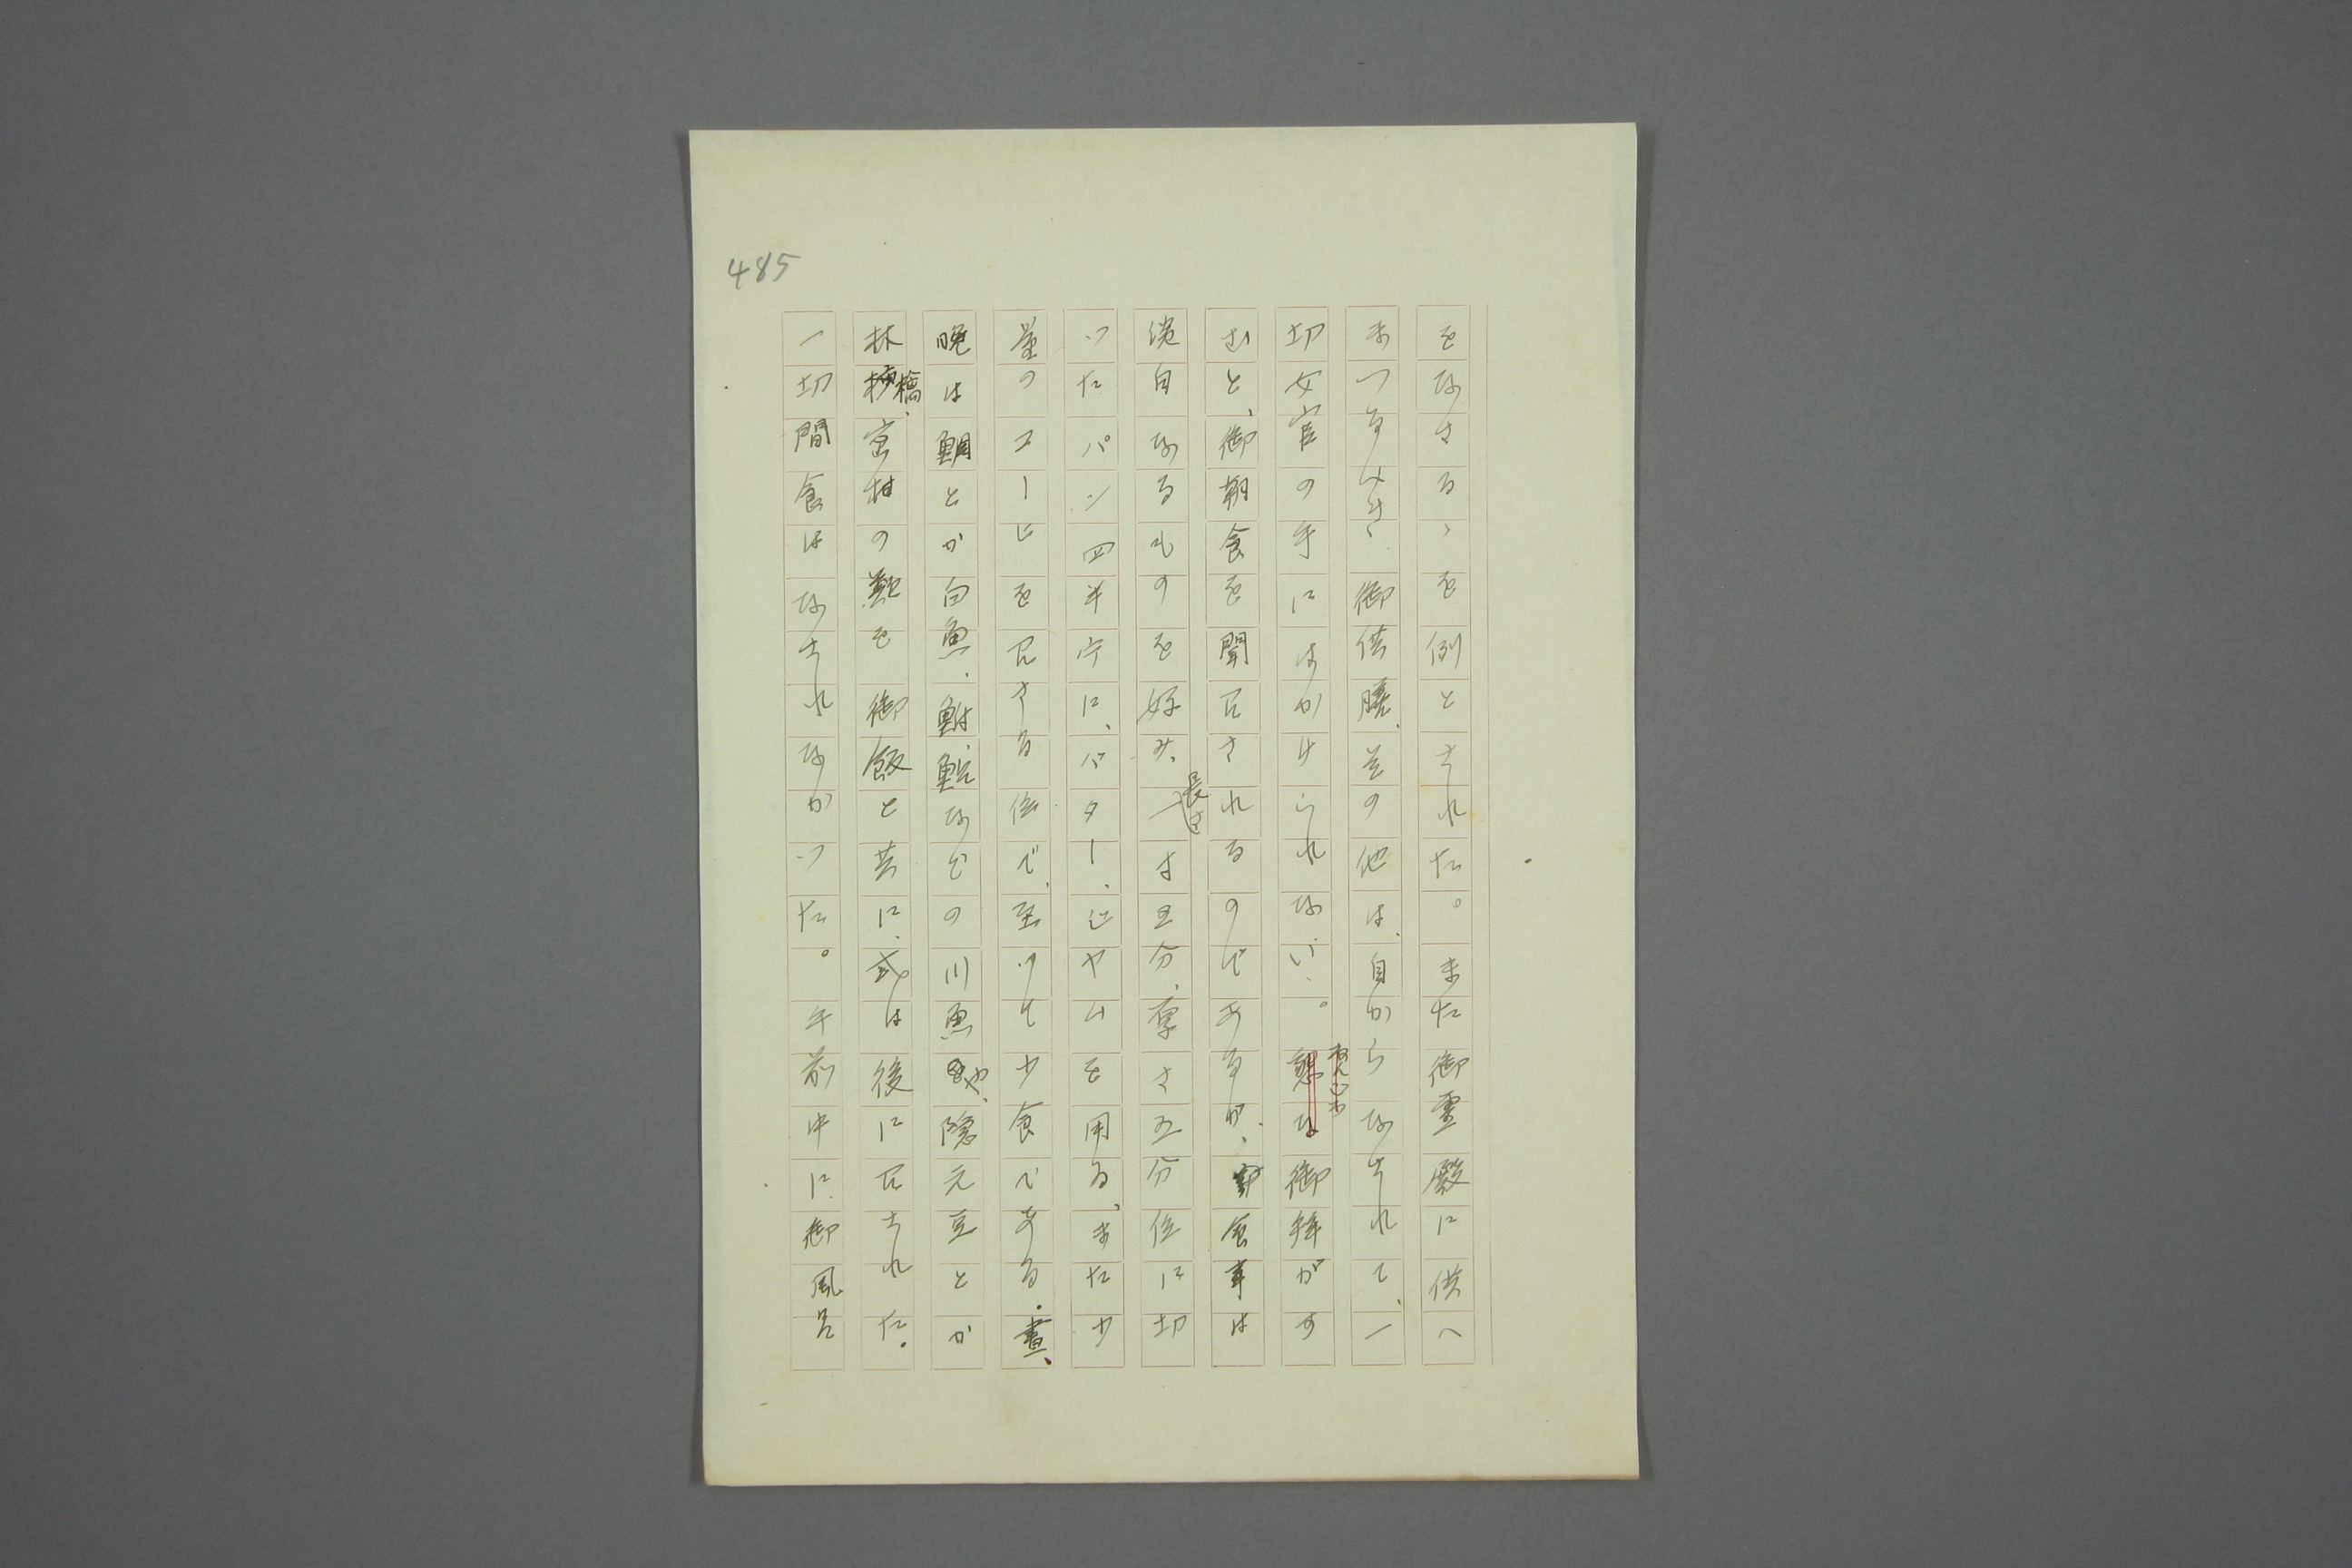 485
をなさるゝを例とされた。また御霊殿に供へ
まつるべき、御供膳、其の他は、自からなされて、一
切女官の手にはかけられない。懇な御拝がす
ねんごろ
むと、御朝食を聞召されるのであるが、食事は
淡白なるものを好み、長さ一寸五分、厚さ五分位に切
つたパン四半に、バター、ジャムを用ゐ、また少
量のコーヒを召さる位で、至つて少食である。晝、
晩は鯛とか白魚、鮒、鯰などの川魚や、隠元豆とか
林檎、蜜柑の類を御飯と共に、或は後に召された。
一切間食はなされなかつた。午前中に御風呂